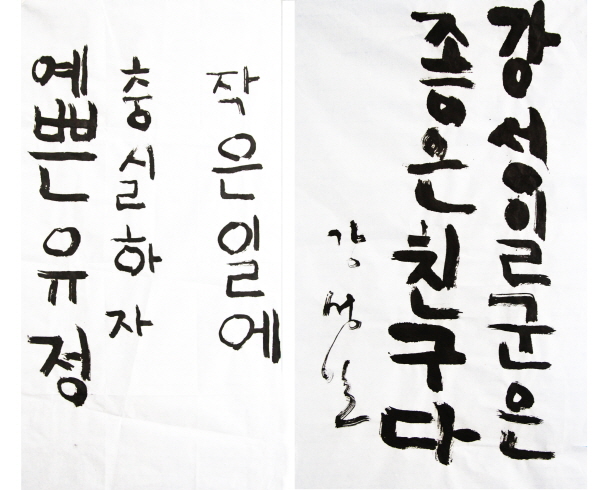 작은일에
충실하자
예쁜유정
강성일군은
좋은친구다
강성일